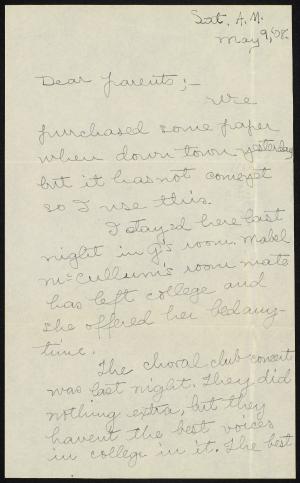 Sat. A.M.
May 9, '08.
Dear parents;—
We
purchased some paper
when down town yesterday
but it has not come yet
so I use this.
I stayed here last
night in G's room. Mabel
McCullum's room mate
has left college and
she offered her bed any-
time.
The choral club concert
was last night. They did
nothing extra, but they
havent the best voices
in college in it. The best